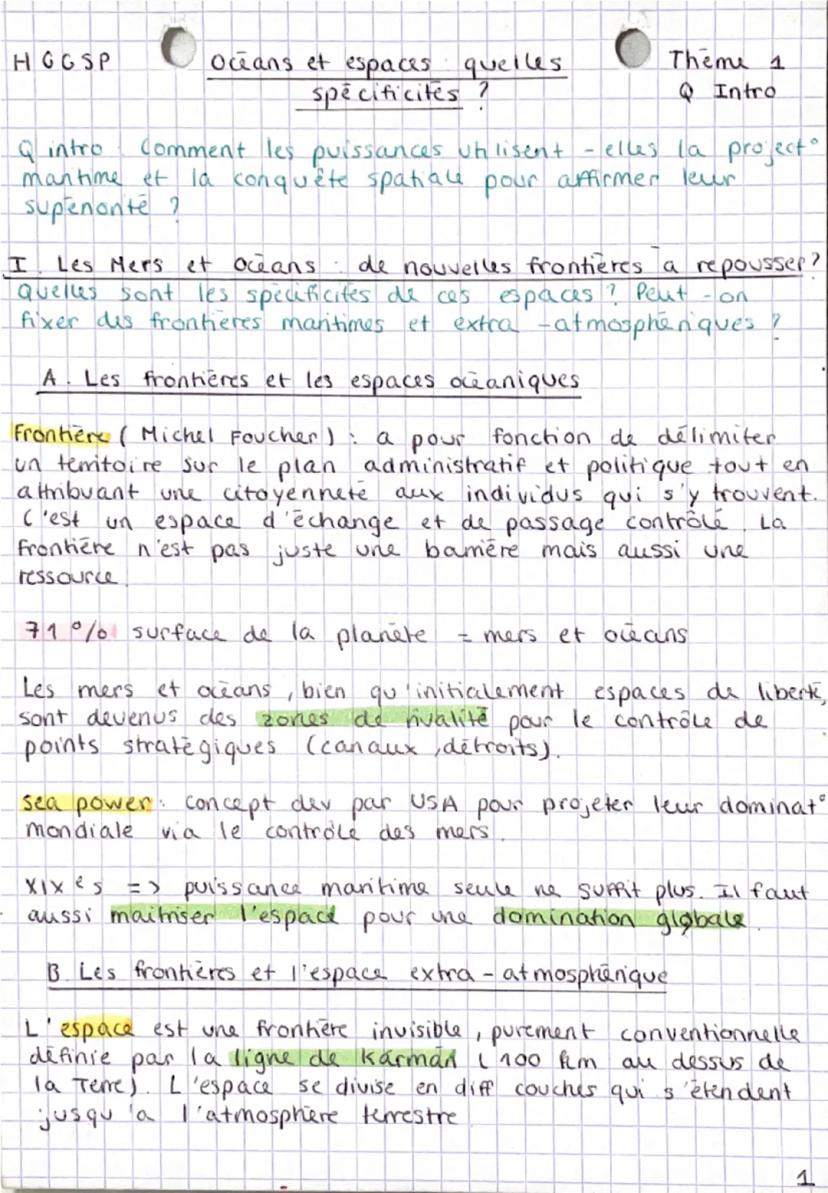 HGGSP
Océans et espaces : quelles
spécificités ?
Thème 1
Q Intro
Q intro : Comment les puissances utilisent-elles la project°
maritime et la conquête spatiale pour affirmer leur
supériorité ?
I. Les Mers et Océans : de nouvelles frontières à repousser ?
Quelles sont les spécificités de ces espaces ? Peut-on
fixer des frontières maritimes et extra-atmosphériques ?
A. Les frontières et les espaces océaniques
Frontière (Michel Foucher) : a pour fonction de délimiter
un territoire sur le plan administratif et politique tout en
attribuant une citoyenneté aux individus qui s'y trouvent.
C'est un espace d'échange et de passage contrôlé. La
frontière n'est pas juste une barrière mais aussi une
ressource.
71 % surface de la planète = mers et océans
Les mers et océans, bien qu'initialement espaces de liberté,
sont devenus des zones de rivalité pour le contrôle de
points stratégiques (canaux, détroits).
sea power : concept dev par USA pour projeter leur dominat°
mondiale via le contrôle des mers.
XIX ès => puissance maritime seule ne suffit plus. Il faut
aussi maîtriser l'espace pour une domination globale.
B. Les frontières et l'espace extra-atmosphérique
L'espace est une frontière invisible, purement conventionnelle
définie par la ligne de Kármán (100 km au dessus de
la Terre). L'espace se divise en diff couches qui s'étendent
jusqu'à l'atmosphère terrestre
1